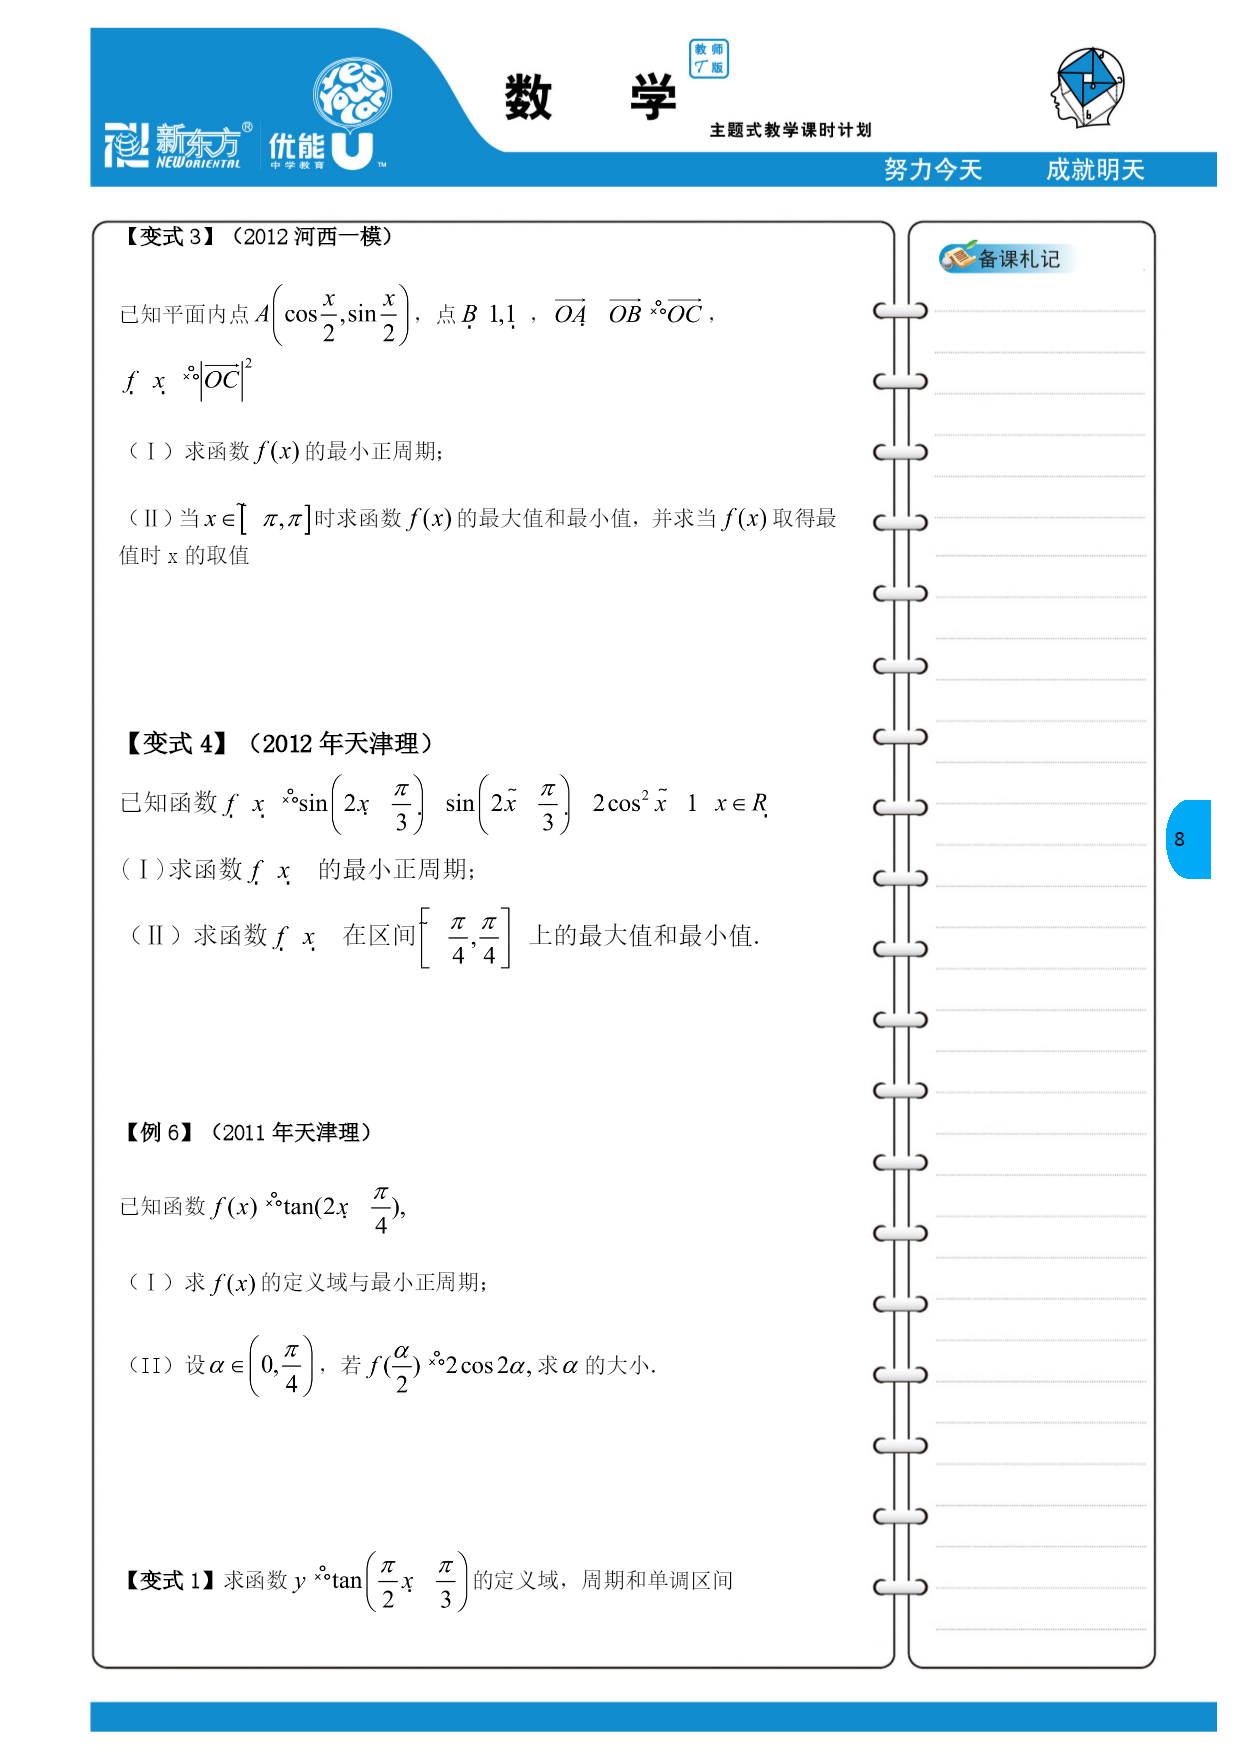 教师
T版
数 学
主题式教学课时计划
新东方® 优能U
NEW ORIENTAL 中学教育 ™
yes you can
努力今天 成就明天
备课札记
【变式3】（2012 河西一模）
已知平面内点 A(cos x/2, sin x/2)，点 B 1,1 ，OA OB OC，
f x |OC|²
（Ⅰ）求函数 f(x) 的最小正周期；
（Ⅱ）当 x∈[ π,π] 时求函数 f(x) 的最大值和最小值，并求当 f(x) 取得最
值时 x 的取值
【变式 4】（2012 年天津理）
已知函数 f x sin(2x π/3) sin(2x π/3) 2cos² x 1 x∈R
（Ⅰ）求函数 f x 的最小正周期；
（Ⅱ）求函数 f x 在区间[ π/4, π/4] 上的最大值和最小值.
8
【例6】（2011 年天津理）
已知函数 f(x) tan(2x π/4),
（Ⅰ）求 f(x) 的定义域与最小正周期；
（II）设 α∈(0, π/4)，若 f(α/2) 2cos2α, 求 α 的大小.
【变式1】求函数 y tan(π/2 x π/3) 的定义域，周期和单调区间